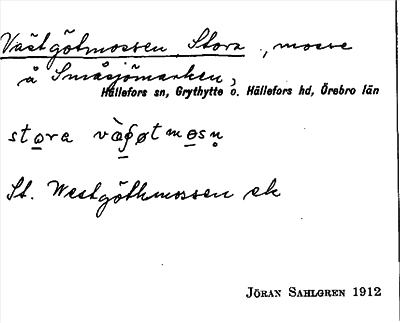 Västgötmossen, Stora, mosse
å Småsjömarken,
Hällefors sn, Grythytte o. Hällefors hd, Örebro län
stora
St. Westgöthmossen ek
JÖRAN SAHLGREN 1912